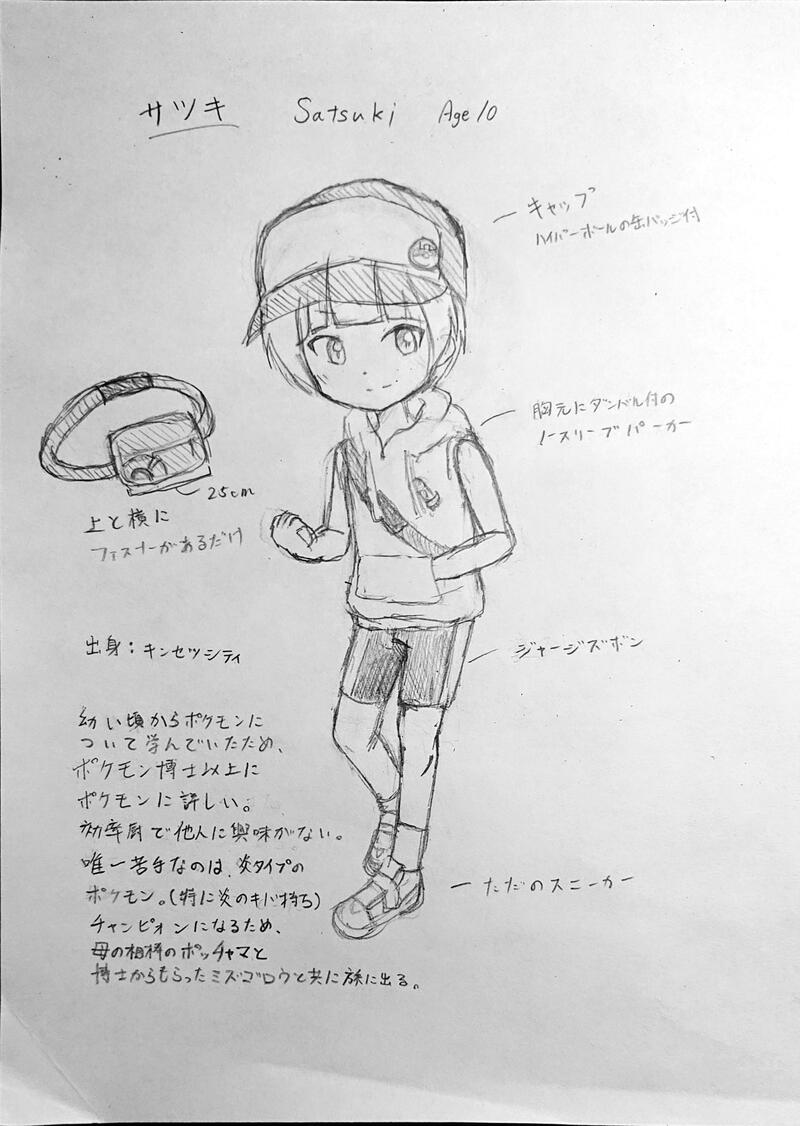 サツキ Satsuki Age 10
キャップ
ハイパーボールの缶バッジ付
胸元にダンバル付の
ノースリーブパーカー
25cm
上と横に
ファスナーがあるだけ
出身：キンセツシティ
ジャージズボン
幼い頃からポケモンに
ついて学んでいたため、
ポケモン博士以上に
ポケモンに詳しい。
効率厨で他人に興味がない。
唯一苦手なのは、炎タイプの
ポケモン。(特に炎のキバ持ち)
チャンピオンになるため、
母の相棒のポッチャマと
博士からもらったミズゴロウと共に旅に出る。
ただのスニーカー